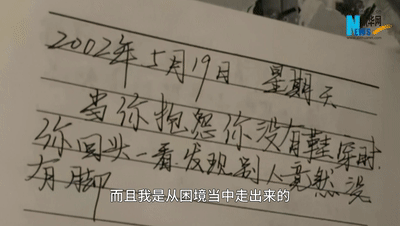 新华网
NEWS
2002年5月19日 星期天
当你抱怨你没有鞋穿时.
你回头一看发现别人竟然没
有脚
而且我是从困境当中走出来的